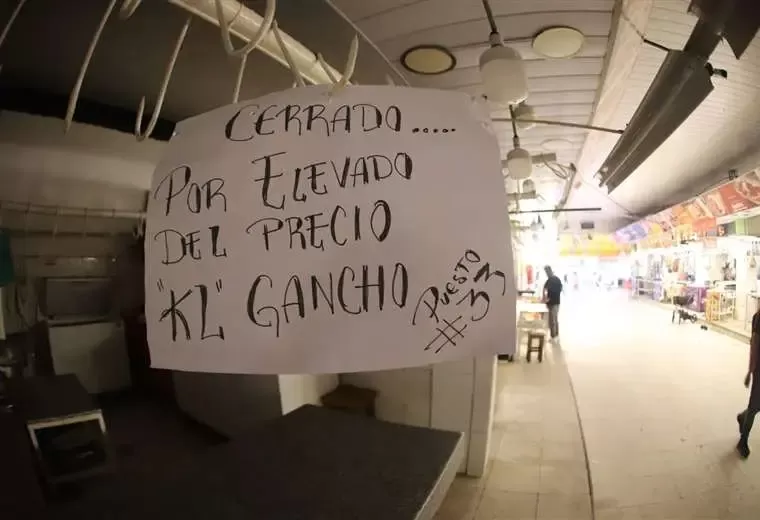 CERRADO.....
POR ELEVADO
DEL PRECIO
"KL" GANCHO
PUESTO
#33